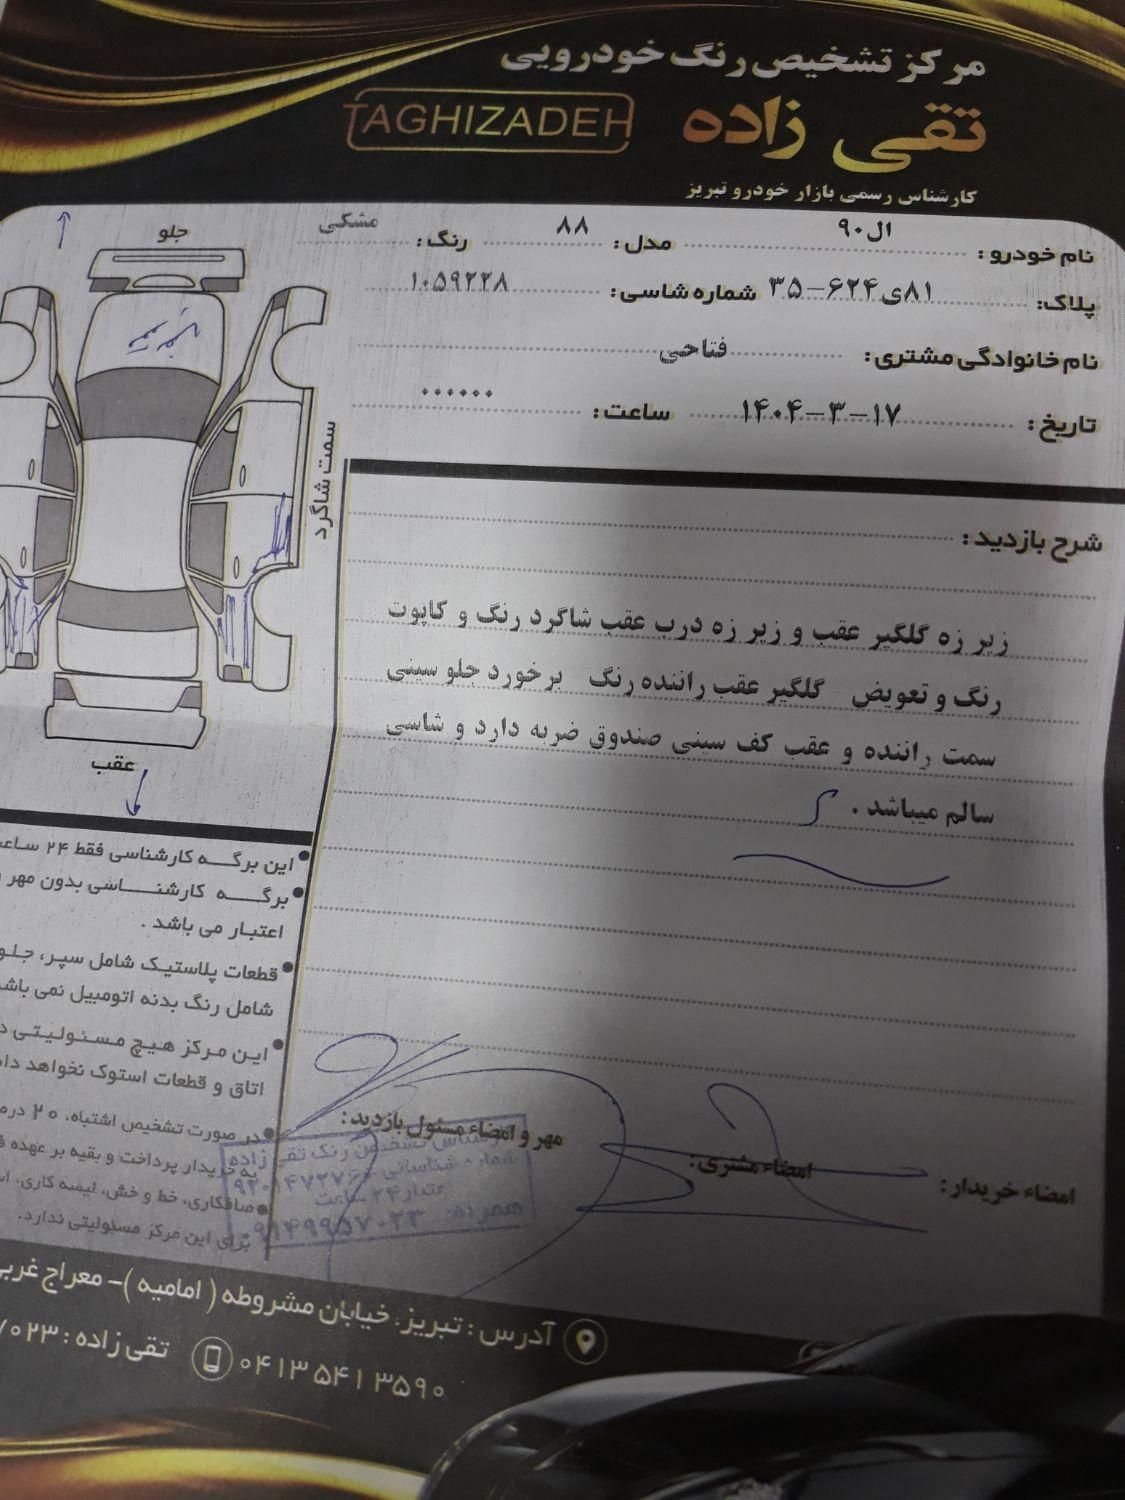 مرکز تشخیص رنگ خودرویی
تقی زاده TAGHIZADEH
کارشناس رسمی بازار خودرو تبریز
نام خودرو: ال۹۰ مدل: ۸۸ رنگ: مشکی
پلاک: ۸۱ی۶۲۴-۳۵ شماره شاسی: ۱۰۵۹۲۲۸
نام خانوادگی مشتری: فتاحی
تاریخ: ۱۴۰۴-۳-۱۷ ساعت: ۰۰۰۰۰۰
جلو
تعویض
سمت شاگرد
عقب
شرح بازدید:
زیر زه گلگیر عقب و زیر زه درب عقب شاگرد رنگ و کاپوت
رنگ و تعویض گلگیر عقب راننده رنگ برخورد جلو سینی
سمت راننده و عقب کف سینی صندوق ضربه دارد و شاسی
سالم میباشد .
این برگه کارشناسی فقط ۲۴
برگه کارشناسی بدون مهر
اعتبار می باشد .
قطعات پلاستیک شامل سپر، جلو
شامل رنگ بدنه اتومبیل نمی
این مرکز هیچ مسئولیتی
اتاق و قطعات استوک نخواهد
در صورت تشخیص اشتباه، ۲۰
به خریدار پرداخت و بقیه بر عهده
صافکاری، خط و خش، لیسه کاری،
برای این مرکز مسئولیتی ندارد.
مهر و امضاء مسئول بازدید:
امضاء مشتری:
امضاء خریدار:
کارشناس تشخیص رنگ تقی زاده
آدرس: تبریز، خیابان مشروطه (امامیه)- معراج غربی
۰۴۱۳۵۴۱۳۵۹۰ تقی زاده: